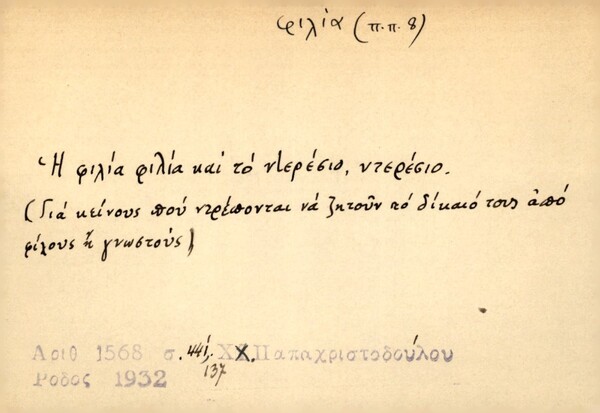 φιλία (π.π. 8)
Ἡ φιλία φιλία καὶ τό ντερέσιο, ντερέσιο.
(Γιά κείνους πού ντρέπονται νά ζητοῦν τό δίκαιό τους ἀπό
φίλους ἤ γνωστούς)
Αριθ 1568 σ. 441, Χ. Παπαχριστοδούλου
137
Ροδος 1932